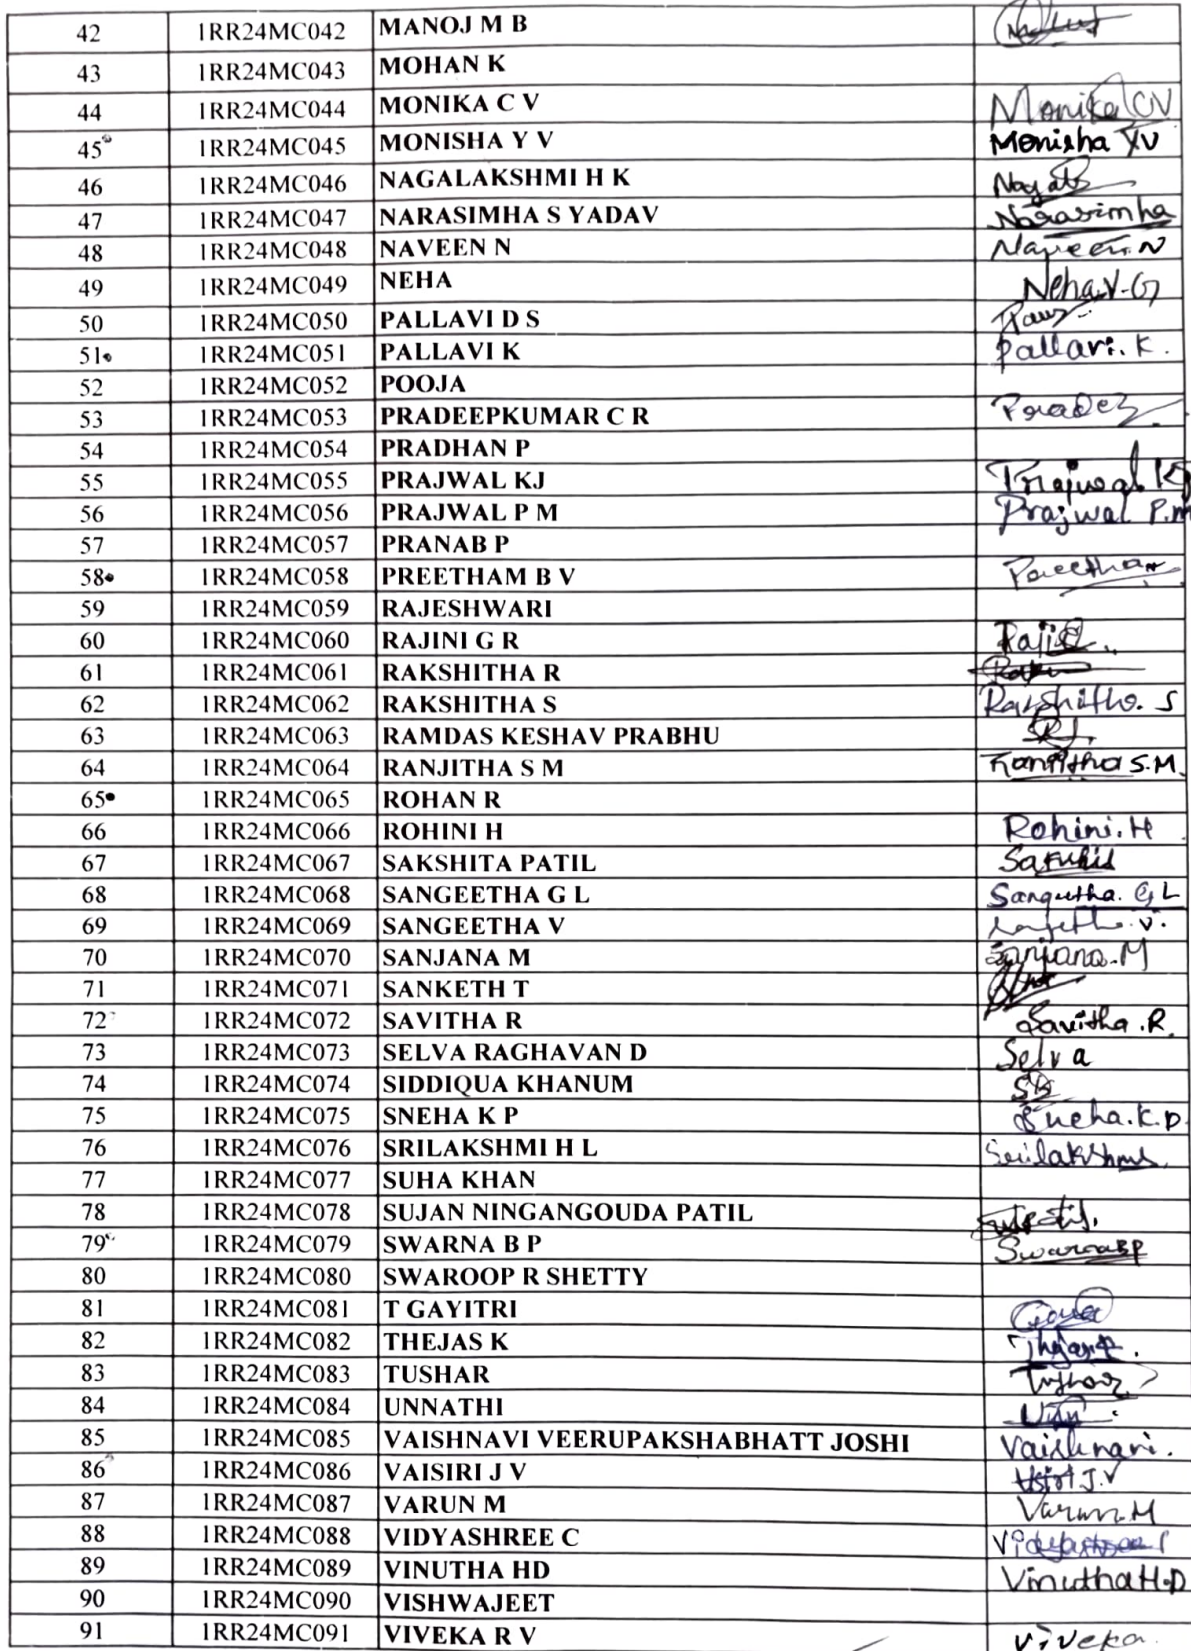 42 1RR24MC042 MANOJ M B
43 1RR24MC043 MOHAN K
44 1RR24MC044 MONIKA C V Monika CV
45 1RR24MC045 MONISHA Y V Monisha YV
46 1RR24MC046 NAGALAKSHMI H K
47 1RR24MC047 NARASIMHA S YADAV Narasimha
48 1RR24MC048 NAVEEN N Naveen.N
49 1RR24MC049 NEHA Neha.V.G
50 1RR24MC050 PALLAVI D S
51 1RR24MC051 PALLAVI K Pallavi.K.
52 1RR24MC052 POOJA
53 1RR24MC053 PRADEEPKUMAR C R
54 1RR24MC054 PRADHAN P
55 1RR24MC055 PRAJWAL KJ Prajwal KJ
56 1RR24MC056 PRAJWAL P M Prajwal P.M
57 1RR24MC057 PRANAB P
58 1RR24MC058 PREETHAM B V
59 1RR24MC059 RAJESHWARI
60 1RR24MC060 RAJINI G R
61 1RR24MC061 RAKSHITHA R
62 1RR24MC062 RAKSHITHA S Rakshitha.S
63 1RR24MC063 RAMDAS KESHAV PRABHU
64 1RR24MC064 RANJITHA S M Ranjitha S.M.
65 1RR24MC065 ROHAN R
66 1RR24MC066 ROHINI H Rohini.H
67 1RR24MC067 SAKSHITA PATIL
68 1RR24MC068 SANGEETHA G L Sangeetha.G L
69 1RR24MC069 SANGEETHA V
70 1RR24MC070 SANJANA M Sanjana.M
71 1RR24MC071 SANKETH T
72 1RR24MC072 SAVITHA R Savitha.R.
73 1RR24MC073 SELVA RAGHAVAN D Selva
74 1RR24MC074 SIDDIQUA KHANUM
75 1RR24MC075 SNEHA K P Sneha.K.P
76 1RR24MC076 SRILAKSHMI H L Srilakshmi
77 1RR24MC077 SUHA KHAN
78 1RR24MC078 SUJAN NINGANGOUDA PATIL
79 1RR24MC079 SWARNA B P Swarna BP
80 1RR24MC080 SWAROOP R SHETTY
81 1RR24MC081 T GAYITRI
82 1RR24MC082 THEJAS K
83 1RR24MC083 TUSHAR Tushar
84 1RR24MC084 UNNATHI
85 1RR24MC085 VAISHNAVI VEERUPAKSHABHATT JOSHI Vaishnavi.
86 1RR24MC086 VAISIRI J V
87 1RR24MC087 VARUN M Varun.M
88 1RR24MC088 VIDYASHREE C
89 1RR24MC089 VINUTHA HD Vinutha H.D
90 1RR24MC090 VISHWAJEET
91 1RR24MC091 VIVEKA R V Viveka.